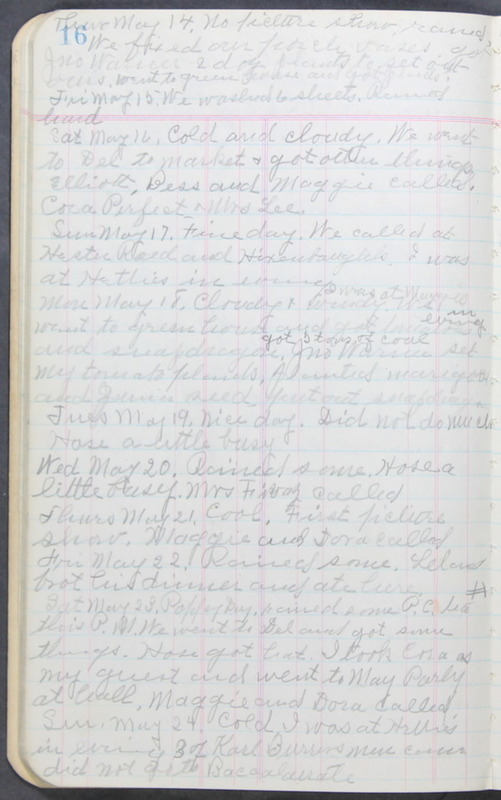 Thur May 14. No picture show, rained
16
We fixed our porch vases got
Jno Warner 2 doz plants to set out
went to green house and got plants.
Fri May 15. We washed 6 sheets. Rained
hard
Sat May 16. Cold and cloudy. We went
to Del to market & got other things
Elliott, Bess and Maggie called.
Cora Perfect & Mrs Lee.
Sun May 17. Fine day. We called at
Hester Reed and Hixenbaughs. I was
at Hatties in evening
Mon May 18. Cloudy & windy. We
was at Mary's
in evening
went to green house and got
got 3 tons of coal
and snapdragon, Jno Warner set
my tomato plants. Planted marigold
and seed put out snapdragon
Tues May 19. Nice day. Did not do much
Hose a little busy
Wed May 20. Rained some. Hose a
little busy. Mrs called
Thurs May 21. Cool. First picture
show. Maggie and Dora called
Fri May 22. Rained some. Leland
brot his dinner and ate here.
Sat May 23. Poppy Day, rained some P.C.
this P.M. We went to Del and got some
things. Hose got hat. I took Cora as
my guest and went to May Party
at hall, Maggie and Dora called
Sun. May 24. Cold I was at Hatties
in evening 3 of Karl Burrers men came
did not go to Baccalaurate